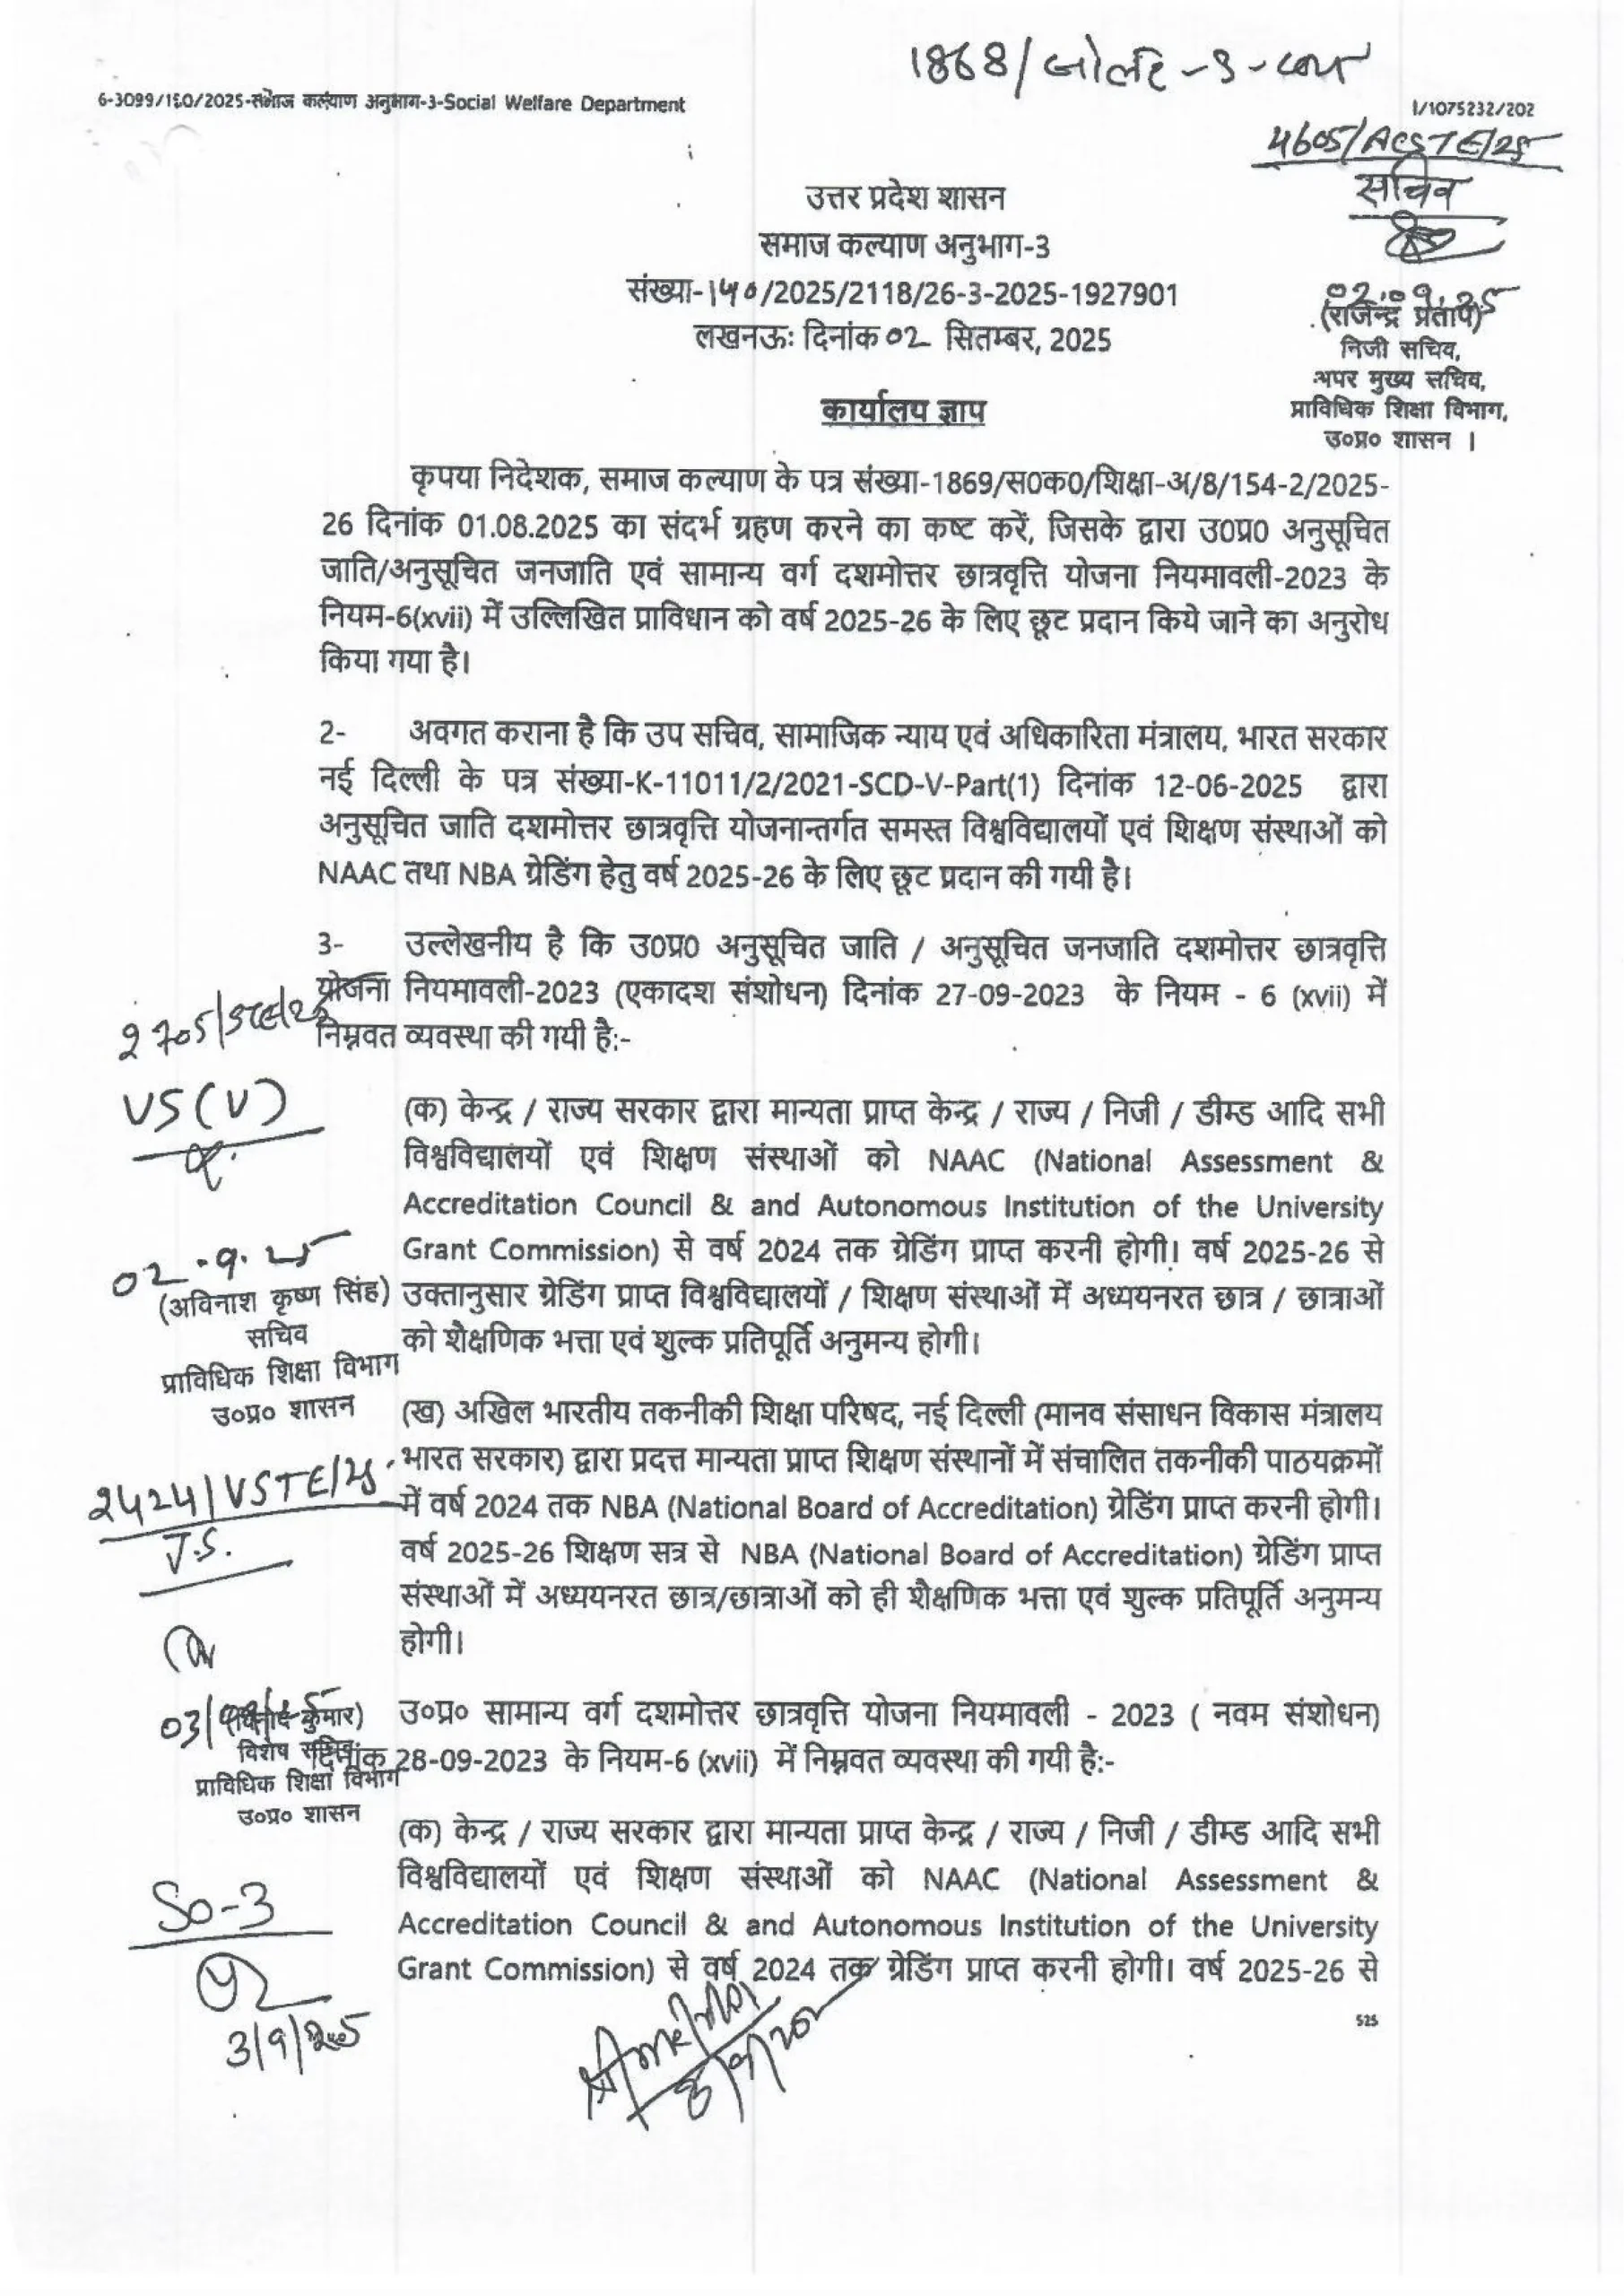 1868/
6-3099/150/2025-समाज कल्याण अनुभाग-3-Social Welfare Department
I/1075232/202
4605/ACSTE/25
सचिव
उत्तर प्रदेश शासन
समाज कल्याण अनुभाग-3
संख्या-140/2025/2118/26-3-2025-1927901
लखनऊः दिनांक 02 सितम्बर, 2025
02.09.25
(राजेन्द्र प्रताप)
निजी सचिव,
अपर मुख्य सचिव,
प्राविधिक शिक्षा विभाग,
उ०प्र० शासन ।
कार्यालय ज्ञाप
कृपया निदेशक, समाज कल्याण के पत्र संख्या-1869/स0क0/शिक्षा-अ/8/154-2/2025-
26 दिनांक 01.08.2025 का संदर्भ ग्रहण करने का कष्ट करें, जिसके द्वारा उ0प्र0 अनुसूचित
जाति/अनुसूचित जनजाति एवं सामान्य वर्ग दशमोत्तर छात्रवृत्ति योजना नियमावली-2023 के
नियम-6(xvii) में उल्लिखित प्राविधान को वर्ष 2025-26 के लिए छूट प्रदान किये जाने का अनुरोध
किया गया है।
2- अवगत कराना है कि उप सचिव, सामाजिक न्याय एवं अधिकारिता मंत्रालय, भारत सरकार
नई दिल्ली के पत्र संख्या-K-11011/2/2021-SCD-V-Part(1) दिनांक 12-06-2025 द्वारा
अनुसूचित जाति दशमोत्तर छात्रवृत्ति योजनान्तर्गत समस्त विश्वविद्यालयों एवं शिक्षण संस्थाओं को
NAAC तथा NBA ग्रेडिंग हेतु वर्ष 2025-26 के लिए छूट प्रदान की गयी है।
3- उल्लेखनीय है कि उ0प्र0 अनुसूचित जाति / अनुसूचित जनजाति दशमोत्तर छात्रवृत्ति
योजना नियमावली-2023 (एकादश संशोधन) दिनांक 27-09-2023 के नियम - 6 (xvii) में
निम्नवत व्यवस्था की गयी है:-
2705/STE/25
VS(V)
(क) केन्द्र / राज्य सरकार द्वारा मान्यता प्राप्त केन्द्र / राज्य / निजी / डीम्ड आदि सभी
विश्वविद्यालयों एवं शिक्षण संस्थाओं को NAAC (National Assessment &
Accreditation Council & and Autonomous Institution of the University
Grant Commission) से वर्ष 2024 तक ग्रेडिंग प्राप्त करनी होगी। वर्ष 2025-26 से
उक्तानुसार ग्रेडिंग प्राप्त विश्वविद्यालयों / शिक्षण संस्थाओं में अध्ययनरत छात्र / छात्राओं
को शैक्षणिक भत्ता एवं शुल्क प्रतिपूर्ति अनुमन्य होगी।
02.9.25
(अविनाश कृष्ण सिंह)
सचिव
प्राविधिक शिक्षा विभाग
उ०प्र० शासन
(ख) अखिल भारतीय तकनीकी शिक्षा परिषद, नई दिल्ली (मानव संसाधन विकास मंत्रालय
भारत सरकार) द्वारा प्रदत्त मान्यता प्राप्त शिक्षण संस्थानों में संचालित तकनीकी पाठयक्रमों
में वर्ष 2024 तक NBA (National Board of Accreditation) ग्रेडिंग प्राप्त करनी होगी।
वर्ष 2025-26 शिक्षण सत्र से NBA (National Board of Accreditation) ग्रेडिंग प्राप्त
संस्थाओं में अध्ययनरत छात्र/छात्राओं को ही शैक्षणिक भत्ता एवं शुल्क प्रतिपूर्ति अनुमन्य
होगी।
2424/VSTE/25
J.S.
उ०प्र० सामान्य वर्ग दशमोत्तर छात्रवृत्ति योजना नियमावली - 2023 ( नवम संशोधन)
दिनांक 28-09-2023 के नियम-6 (xvii) में निम्नवत व्यवस्था की गयी है:-
(विनोद कुमार)
विशेष सचिव
प्राविधिक शिक्षा विभाग
उ०प्र० शासन
(क) केन्द्र / राज्य सरकार द्वारा मान्यता प्राप्त केन्द्र / राज्य / निजी / डीम्ड आदि सभी
विश्वविद्यालयों एवं शिक्षण संस्थाओं को NAAC (National Assessment &
Accreditation Council & and Autonomous Institution of the University
Grant Commission) से वर्ष 2024 तक ग्रेडिंग प्राप्त करनी होगी। वर्ष 2025-26 से
So-3
3/9/2025
525